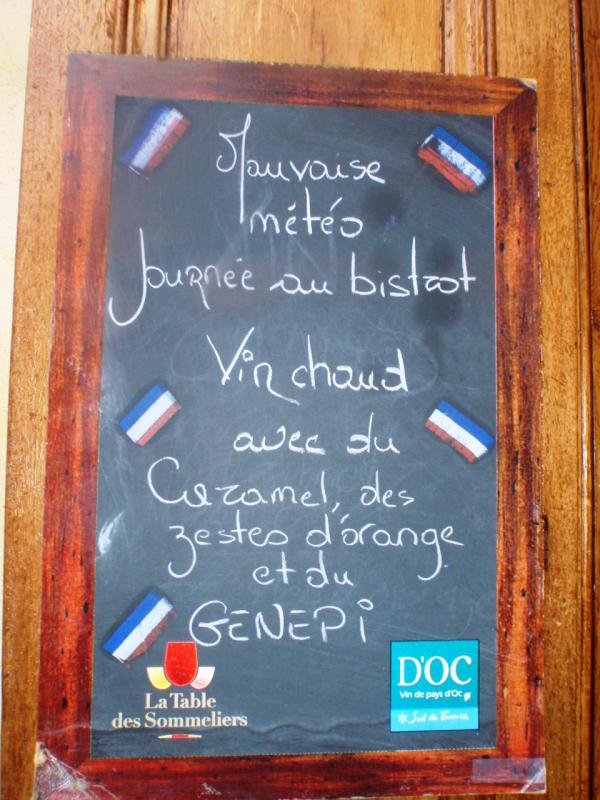 Mauvaise
météo
Journée au bistrot
Vin chaud
avec du
Caramel, des
zestes d'orange
et du
GENEPi
La Table
des Sommeliers
D'OC
Vin de pays d'Oc
Sud de France